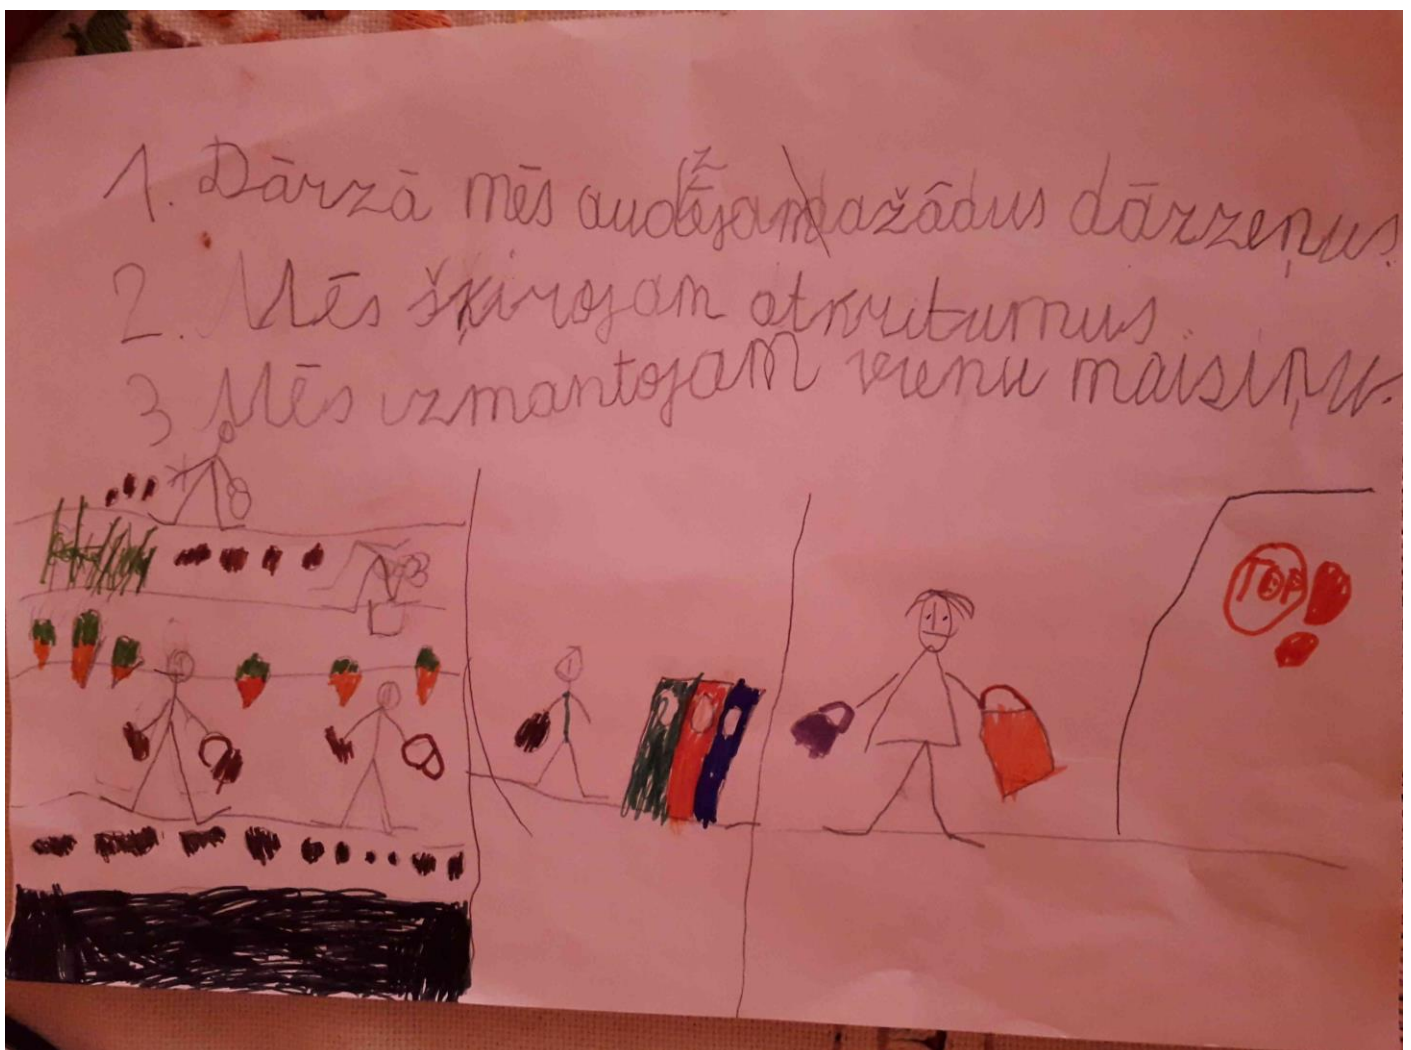 1. Dārzā mēs audzējam dažādus dārzeņus.
2. Mēs šķirojam atkritumus.
3 Mēs izmantojam vienu maisiņu.
TOP